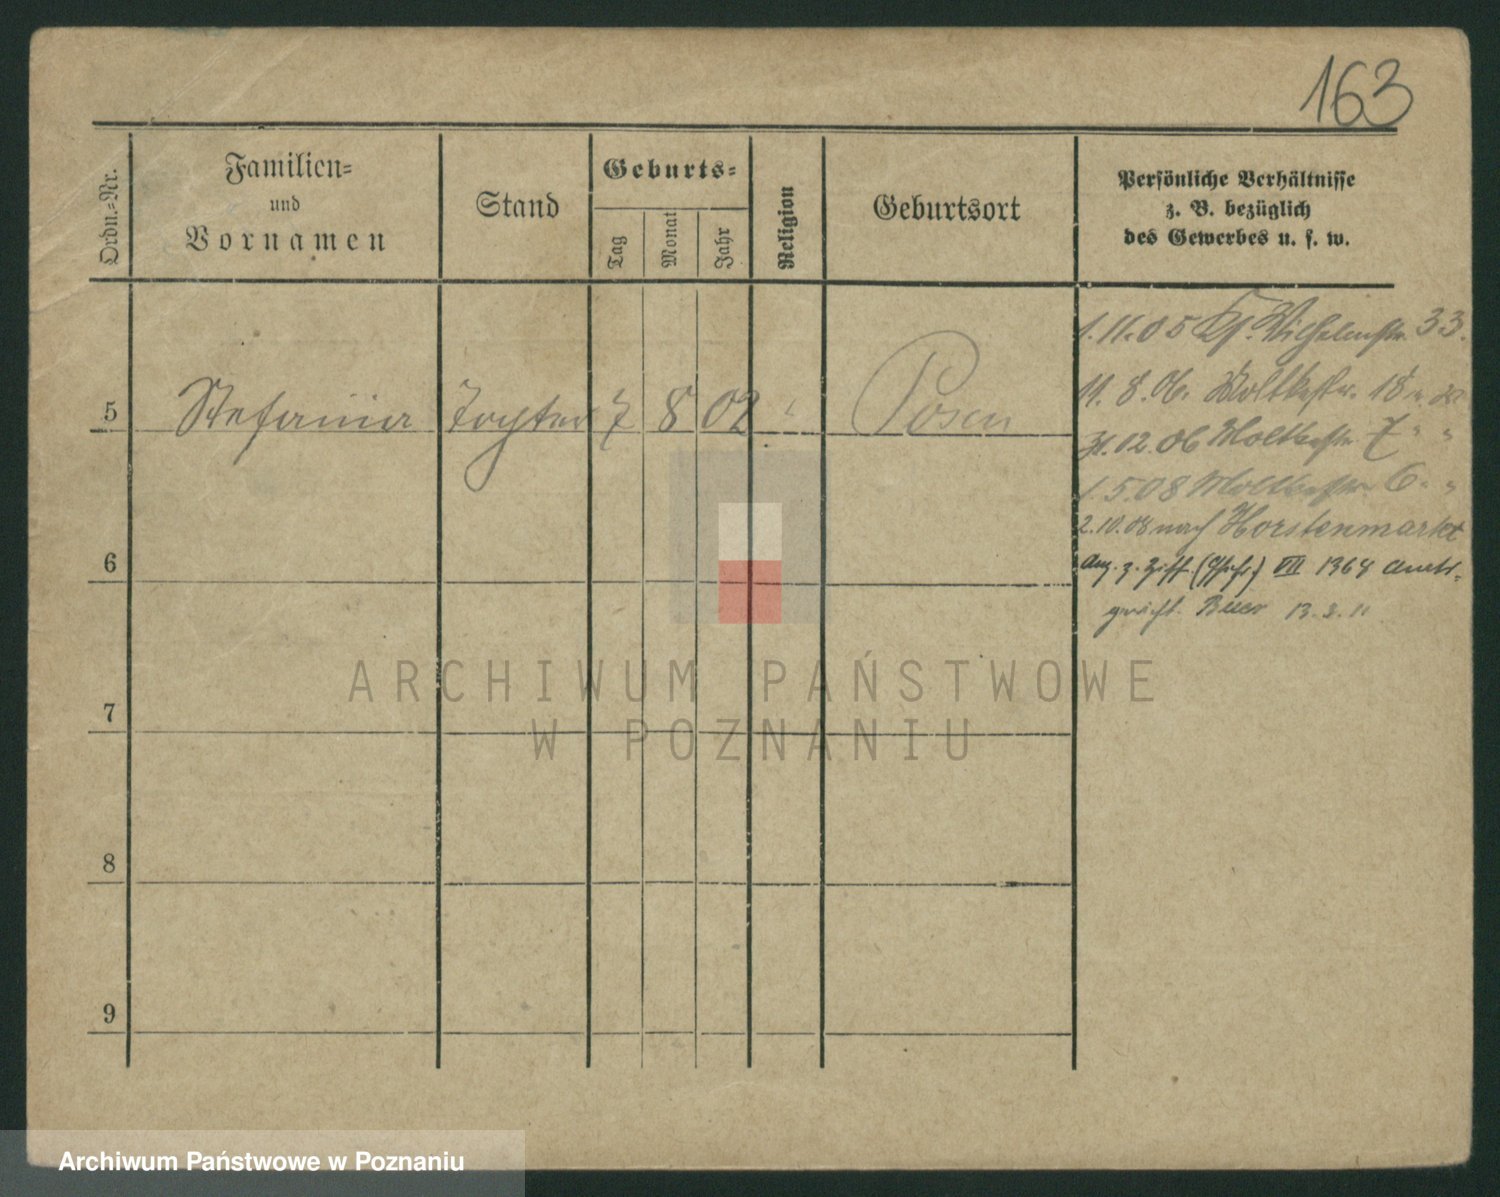 163
Ordn.-Nr.
Familien-
und
Vornamen
Stand
Geburts-
Tag
Monat
Jahr
Religion
Geburtsort
Persönliche Verhältnisse
z. B. bezüglich
des Gewerbes u. s. w.
1.11.05 Wilhelmstr. 33.
5 Stefania Tochter 7 8 02 Posen
11.8.06. Moltkestr. 18
12.06 Moltkestr. 7 " "
1.5.08 Moltkestr. 6 " "
2.10.08 nach Horstenmarkt
6
VII 1364 Amts-
gericht Buer 13.3.11
ARCHIWUM PAŃSTWOWE
W POZNANIU
7
8
9
Archiwum Państwowe w Poznaniu